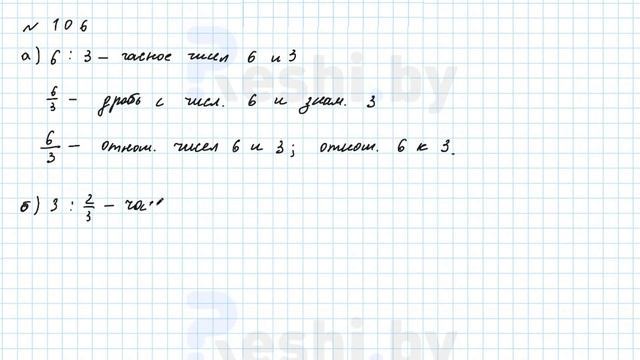 № 106
а) 6 : 3 – часное чисел 6 и 3
6/3 – дробь с числ. 6 и знам. 3
6/3 – отнош. чисел 6 и 3; отнош. 6 к 3.
б) 3 : 2/3 – час
Reshi.by
Reshi.by